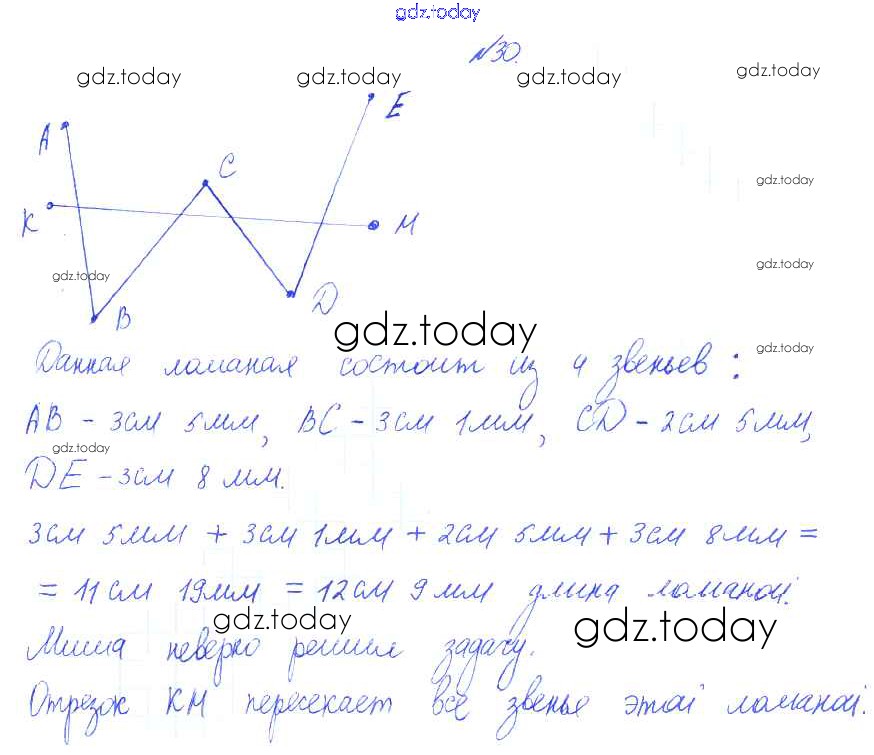 gdz.today
№30.
gdz.today gdz.today gdz.today gdz.today
E
A
C
gdz.today
K
M
gdz.today
gdz.today
D
B
gdz.today
gdz.today
Данная ломаная состоит из 4 звеньев:
AB - 3см 5мм, BC - 3см 1мм, CD - 2см 5мм,
gdz.today
DE - 3см 8 мм.
3см 5мм + 3см 1мм + 2см 5мм + 3см 8мм =
= 11см 19мм = 12см 9мм длина ломаной.
gdz.today gdz.today
Миша неверно решил задачу.
Отрезок KM пересекает все звенье этой ломаной.